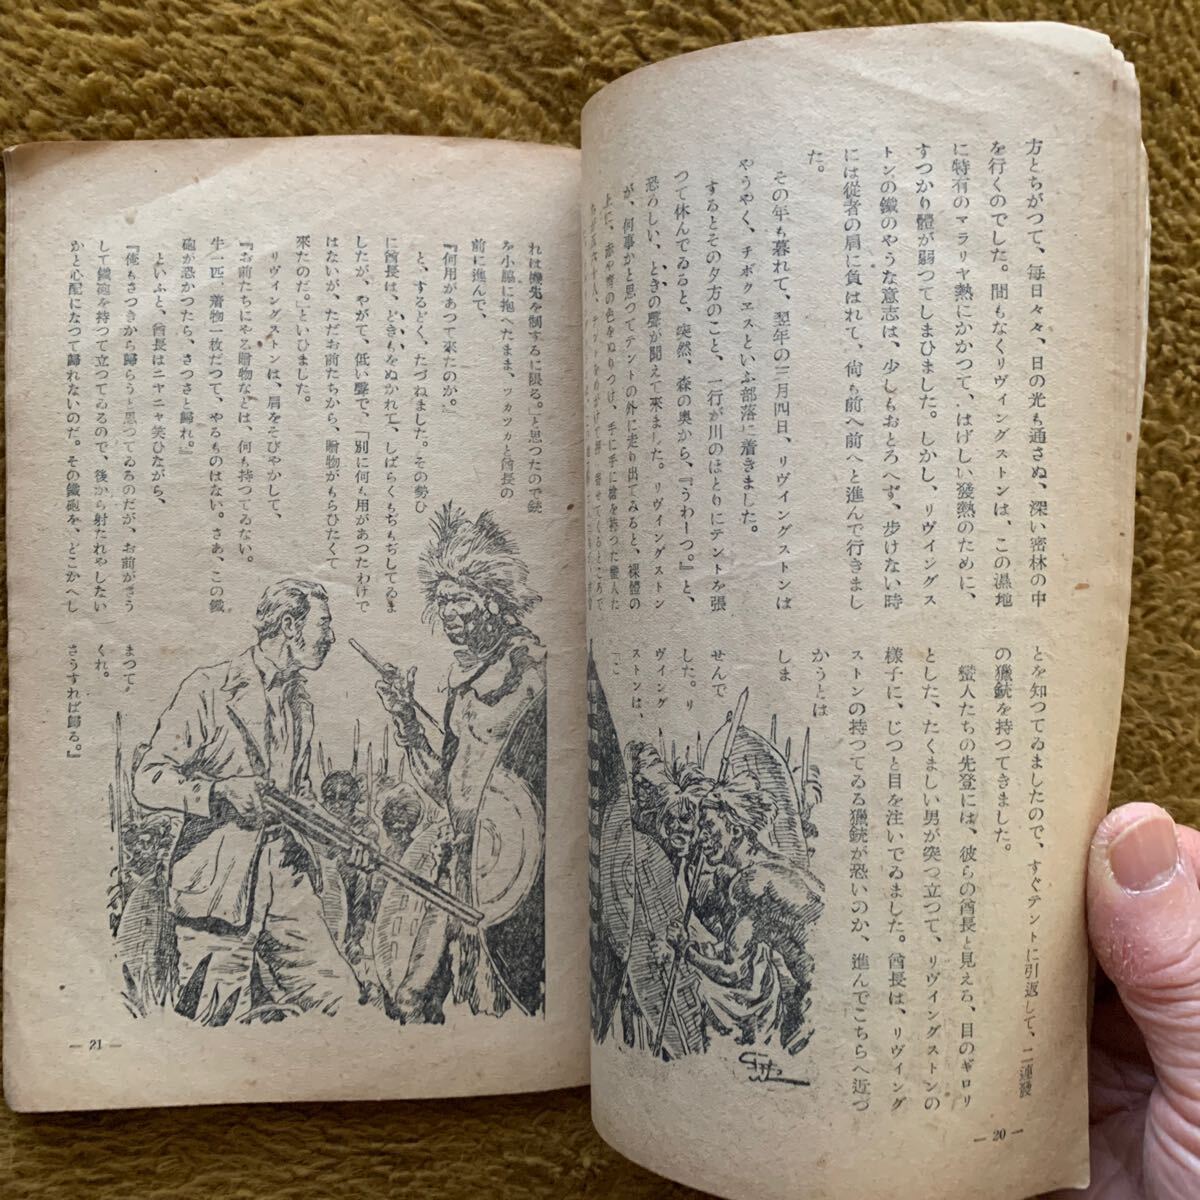 方とちがつて、毎日々々、日の光も通さぬ、深い密林の中
を行くのでした。間もなくリヴィングストンは、この濕地
に特有のマラリヤ熱にかかつて、はげしい發熱のために、
すつかり體が弱つてしまひました。しかし、リヴィングス
トンの鐵のやうな意志は、少しもおとろへず、步けない時
には從者の肩に負はれて、尙も前へ前へと進んで行きまし
た。
その年も暮れて、翌年の三月四日、リヴィングストンは
やうやく、チボクヱスといふ部落に着きました。
するとその夕方のこと、一行が川のほとりにテントを張
つて休んでゐると、突然、森の奥から、『うわーつ。』と、
恐ろしい、ときの聲が聞えて來ました。リヴィングストン
が、何事かと思つてテントの外に走り出てみると、裸體の
上に、赤や靑の色をぬりつけ、手に手に槍を持つた蠻人た
とを知つてゐましたので、すぐテントに引返して、二連發
の獵銃を持つてきました。
蠻人たちの先登には、彼らの酋長と見える、目のギロリ
とした、たくましい男が突つ立つて、リヴィングストンの
樣子に、じつと目を注いでゐました。酋長は、リヴィング
ストンの持つてゐる獵銃が恐いのか、進んでこちらへ近づ
かうとは
しま
せんで
した。リ
ヴィング
ストンは、
「こ
— 20 —
れは機先を制するに限る。」と思つたので銃
を小脇に抱へたまま、ツカツカと酋長の
前に進んで、
『何用があつて來たのか。』
と、するどく、たづねました。その勢ひ
に酋長は、どぎもをぬかれて、しばらくもぢもぢしてゐま
したが、やがて、低い聲で、「別に何も用があつたわけで
はないが、ただお前たちから、贈物がもらひたくて
來たのだ。」といひました。
リヴィングストンは、肩をそびやかして、
『お前たちにやる贈物などは、何も持つてゐない。
牛一匹、着物一枚だつて、やるものはない。さあ、この鐵
砲が恐かつたら、さつさと歸れ。』
といふと、酋長はニヤニヤ笑ひながら、
『俺もさつきから歸らうと思つてゐるのだが、お前がさう
して鐵砲を持つて立つてゐるので、後から射たれやしない
かと心配になつて歸れないのだ。その鐵砲を、どこかへし
まつて
くれ。
さうすれば歸る。』
— 21 —